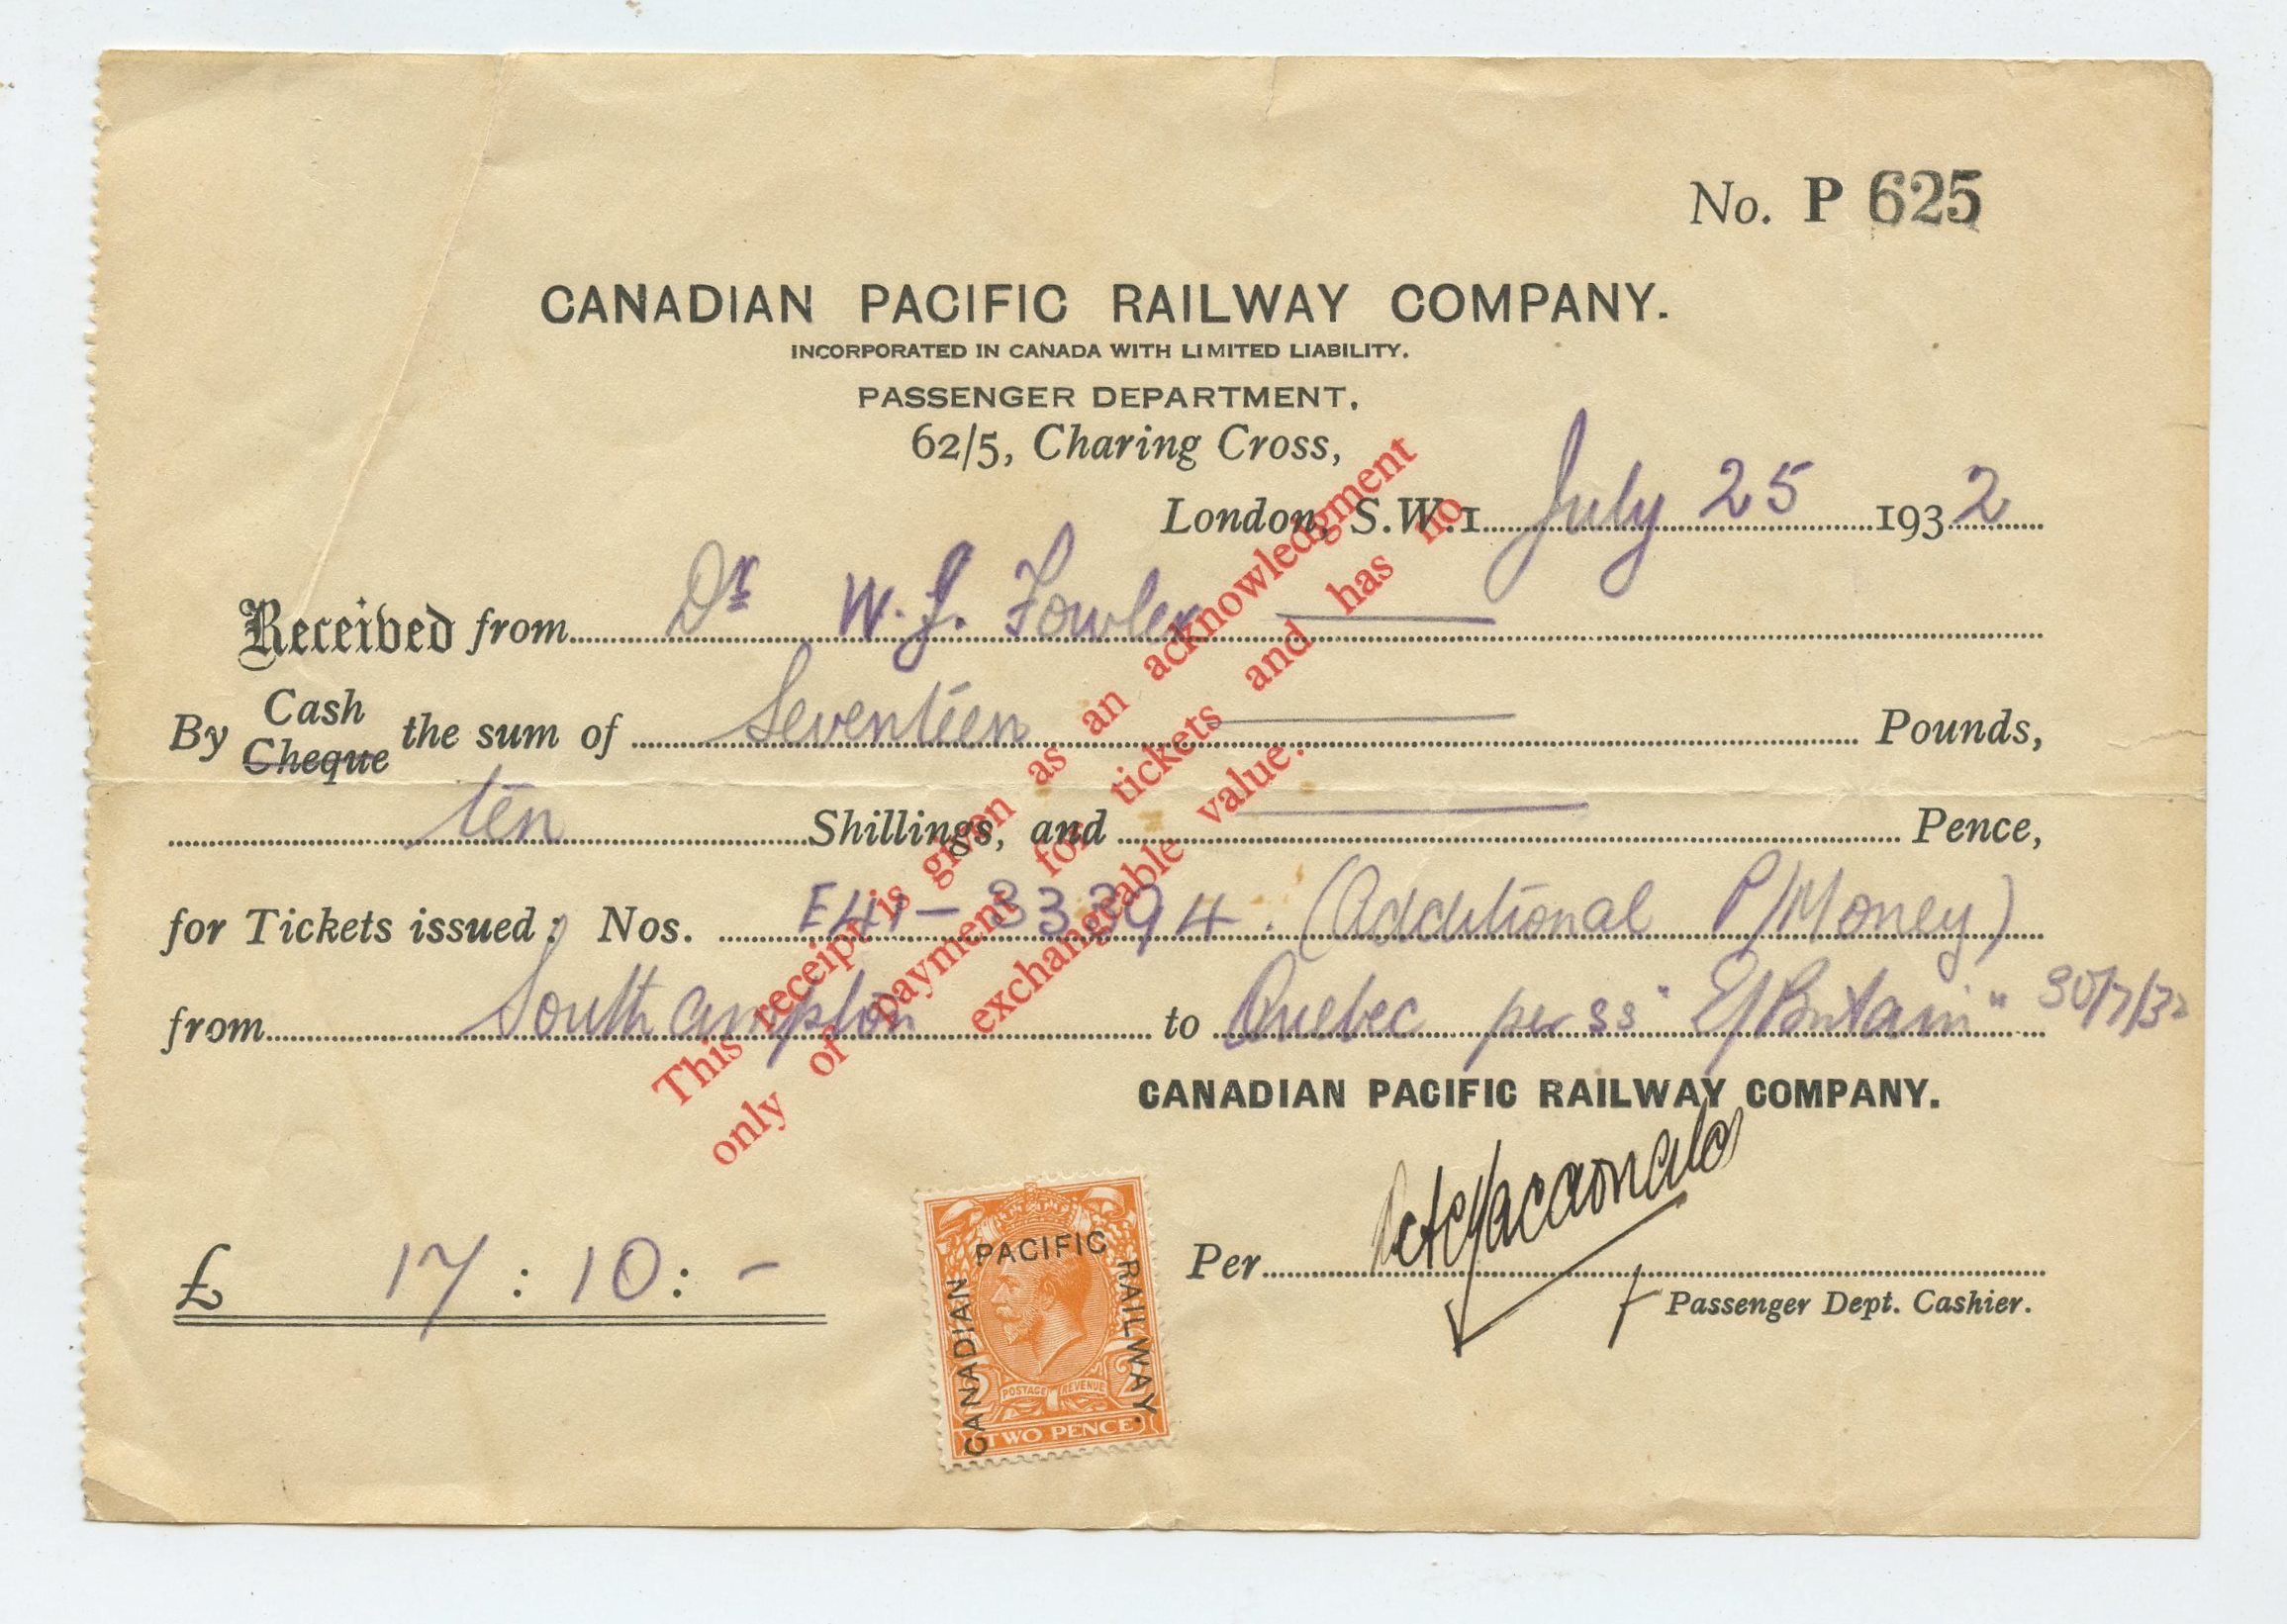 No. P 625
CANADIAN PACIFIC RAILWAY COMPANY.
INCORPORATED IN CANADA WITH LIMITED LIABILITY.
PASSENGER DEPARTMENT,
62/5, Charing Cross,
London, S.W.1 July 25 1932
Received from Dr W. J. Fowler
By Cash Cheque the sum of Seventeen Pounds,
ten Shillings, and Pence,
for Tickets issued: Nos. E41-33394. (Additional P/Money)
from Southampton to Quebec per ss "E/Britain" 30/7/32
This receipt is given as an acknowledgment
only of payment for tickets and has no
exchangeable value.
CANADIAN PACIFIC RAILWAY COMPANY.
Per
Passenger Dept. Cashier.
£ 17 : 10 : -
CANADIAN PACIFIC RAILWAY.
POSTAGE REVENUE
2 2
TWO PENCE